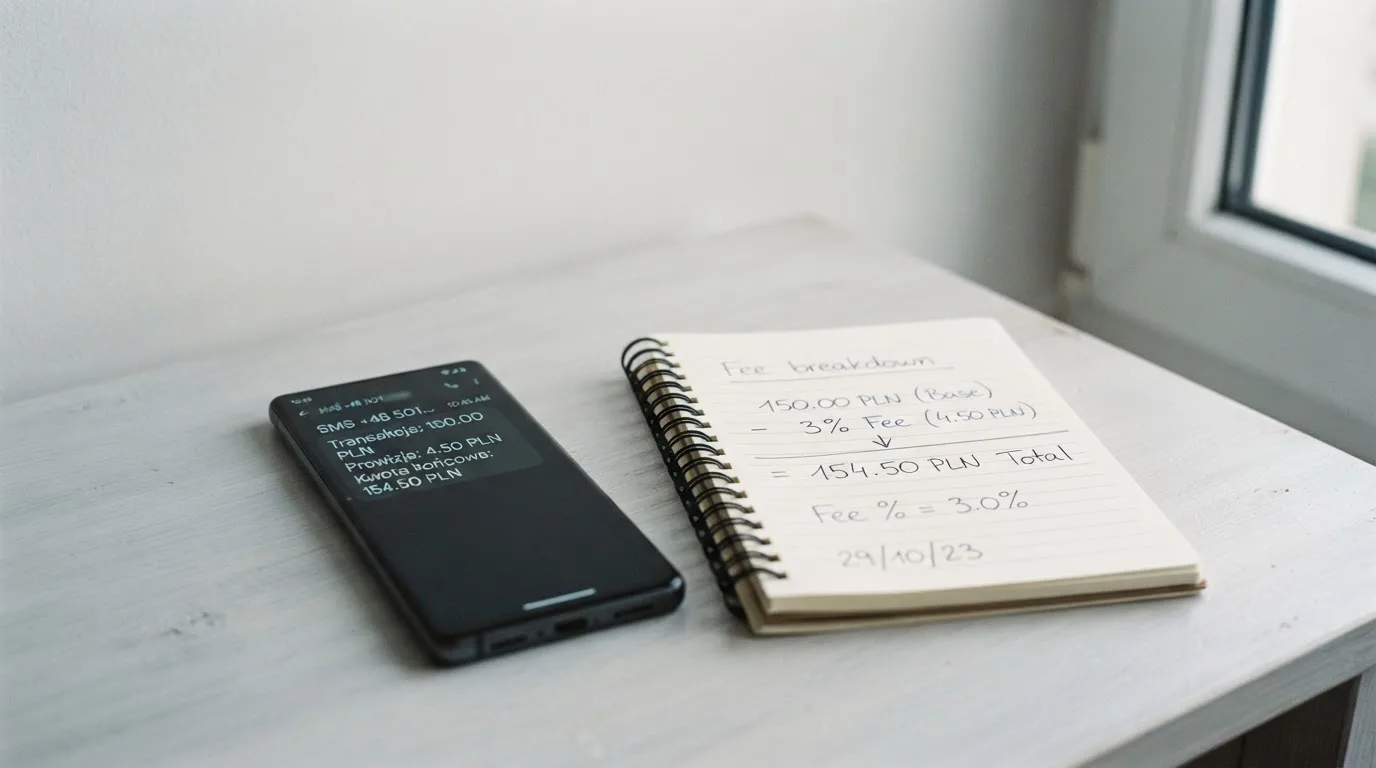 SMS +48 501...
10:45 AM
Transakcja: 150.00
PLN
Prowizja: 4.50 PLN
Kwota końcowa:
154.50 PLN
Fee breakdown
150.00 PLN (Base)
- 3% Fee (4.50 PLN)
↓
= 154.50 PLN Total
Fee % = 3.0%
29/10/23